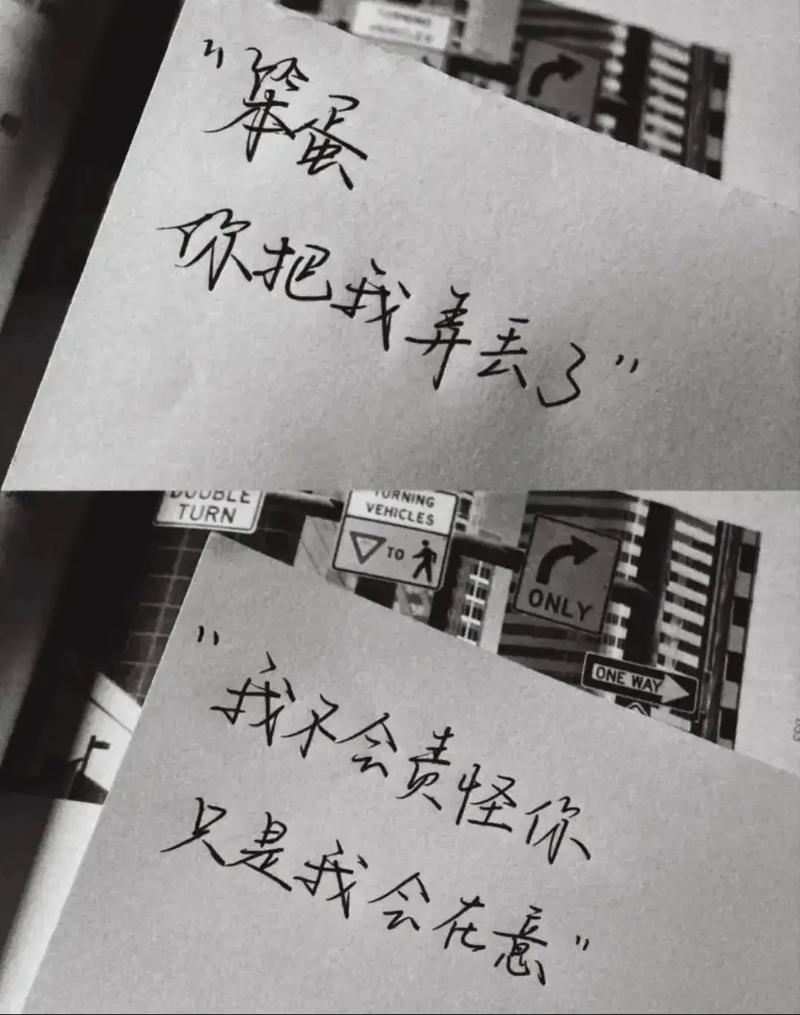 TURNING
VEHICLES
"笨蛋
你把我弄丢了"
DOUBLE
TURN
TURNING
VEHICLES
TO
ONLY
ONE WAY
"我不会责怪你
只是我会在意"